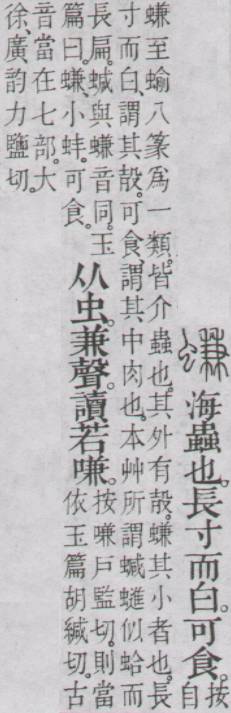 螊 海蟲也。長寸而白。可食。按自
螊至蝓八篆爲一類。皆介蟲也。其外有殼。螊其小者也。長
寸而白、謂其殼。可食、謂其中肉也。本艸所謂蝛䗯似蛤而
長扁。蝛與螊音同。玉
篇曰。螊、小蚌。可食。
从虫。兼聲。讀若嗛。
按嗛戶監切。則當
依玉篇胡緘切。古
音當在七部。大
徐、廣韵力鹽切。